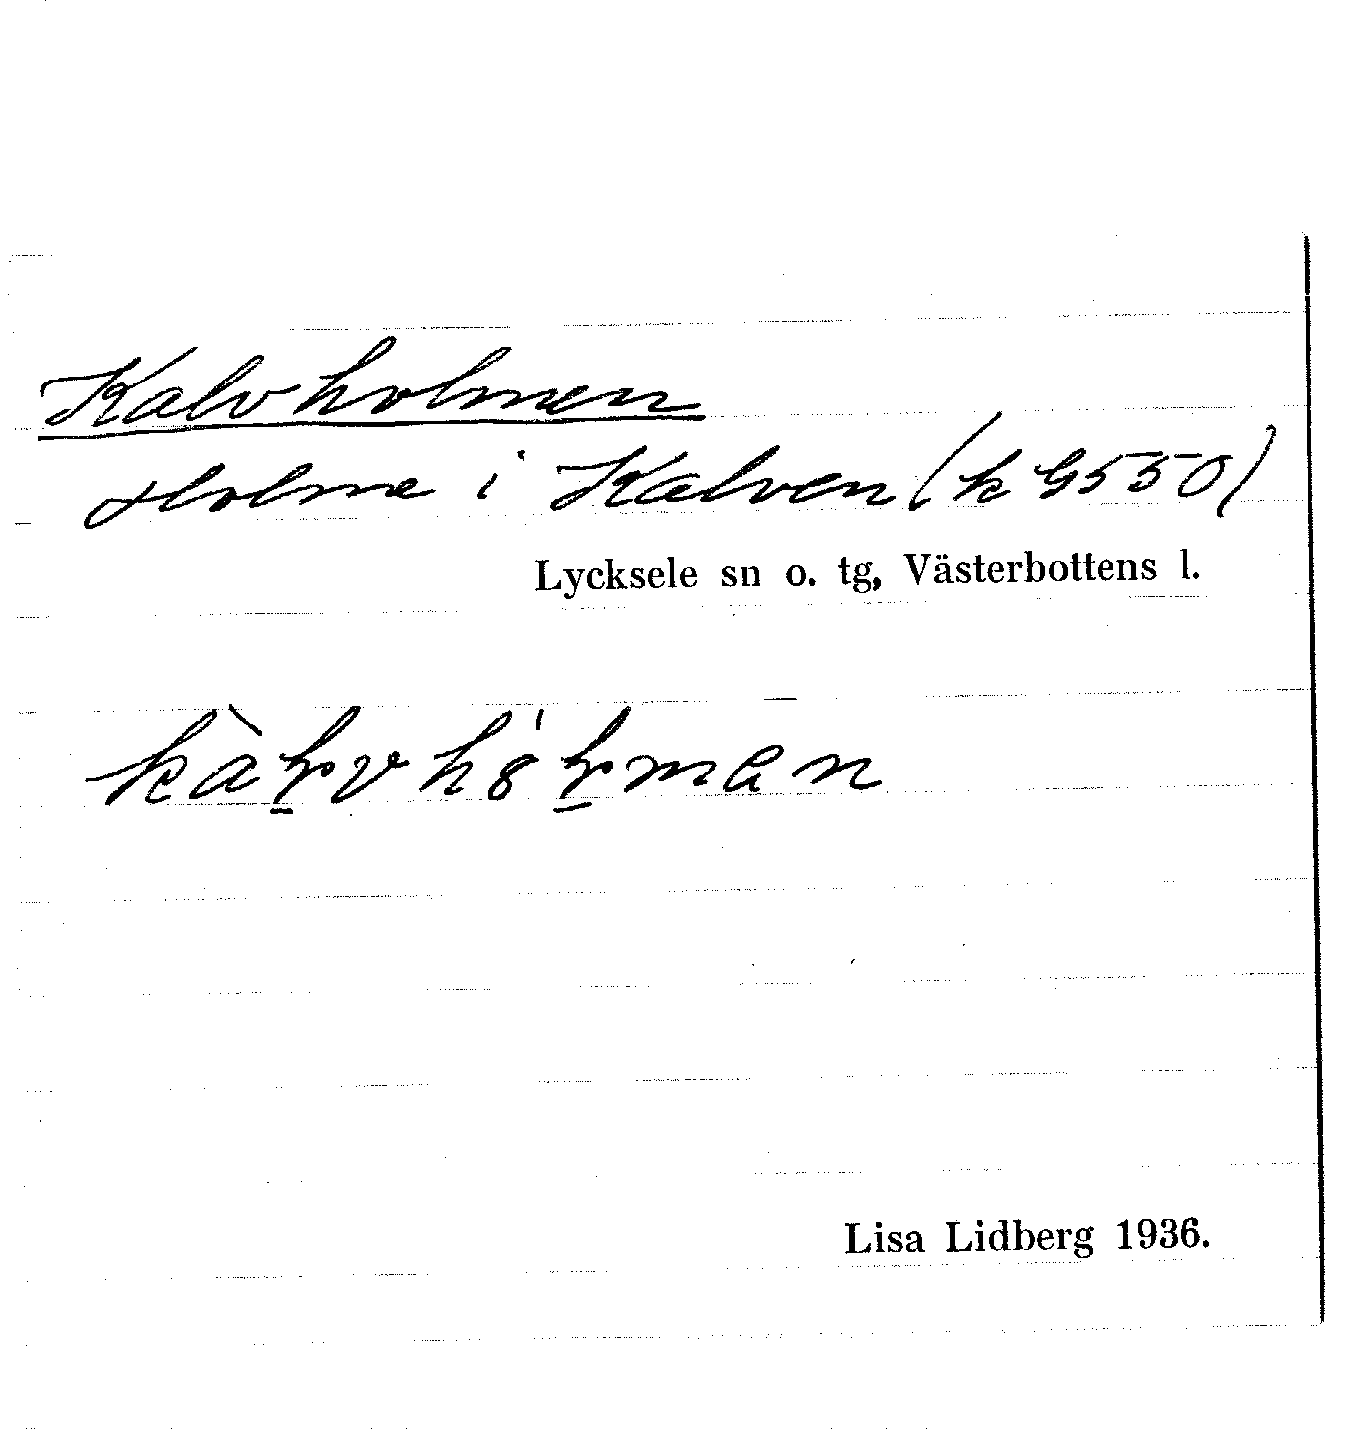 Kalvholmen
Holme i Kalven (k G550)
Lycksele sn o. tg, Västerbottens l.
Lisa Lidberg 1936.